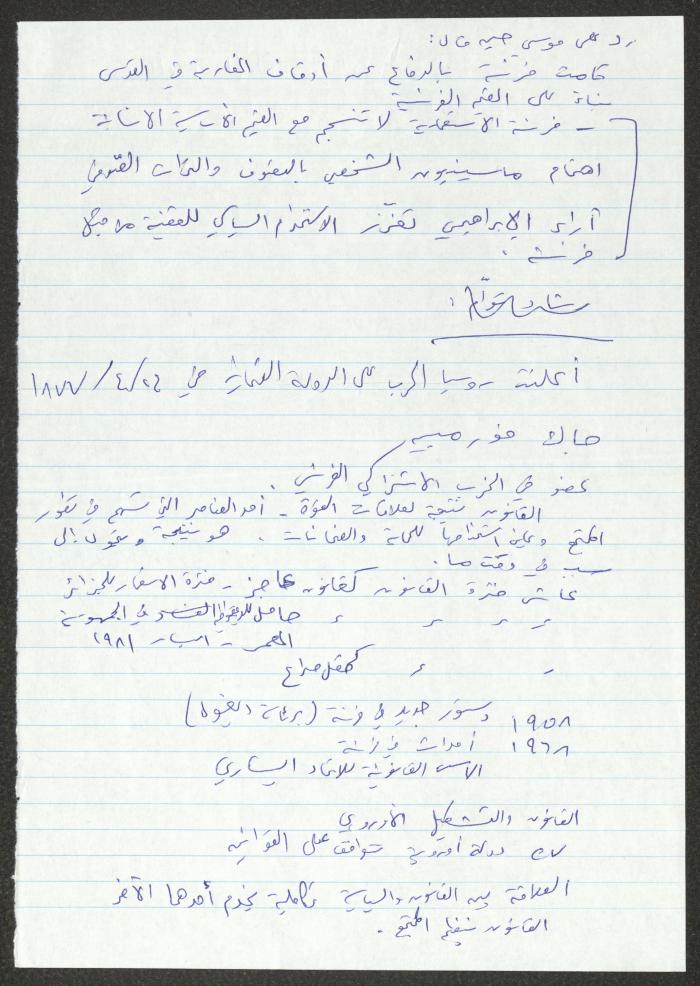 رد على موسى حين قال:
قامت فرنسة بالدفاع عن أوقاف المغاربة في القدس
بناءً على القيم الفرنسية
- فرنسة الاستعمارية لا تنسجم مع القيم الأساسية الإنسانية
اهتمام ماسينيون الشخصي بالتصوف والتراث الصوفي
آراء الإبراهيمي تعزّز الاستخدام السياسي للقضية من قبل
فرنسة.
أعلنت روسيا الحرب على الدولة العثمانية في ٢٤/٤/١٨٧٧
جاك فورمييه
عضو في الحزب الاشتراكي الفرنسي.
القانون نتيجة لعلاقات القوة - أحد العناصر التي تسهم في تطور
المجتمع ويمكن استخدامها للحماية والضمانات. هو نتيجة ويتحول إلى
سبب في وقت ما.
عاش فترة القانون كقانون حاجز - فترة الاستعمار للجزائر
حامل في الجمهورية
- ١٩٨١
كحقل صراع
١٩٥٨ دستور جديد في فرنسة (برئاسة ديغول)
١٩٦٨ أحداث في فرنسة
الأسس القانونية للاتحاد اليساري
القانون والتشكل الأوروبي
٢٥ دولة أوروبية تتوافق على القوانين
العلاقة بين القانون والسياسة تكاملية يخدم أحدهما الآخر
القانون ينظم المجتمع.